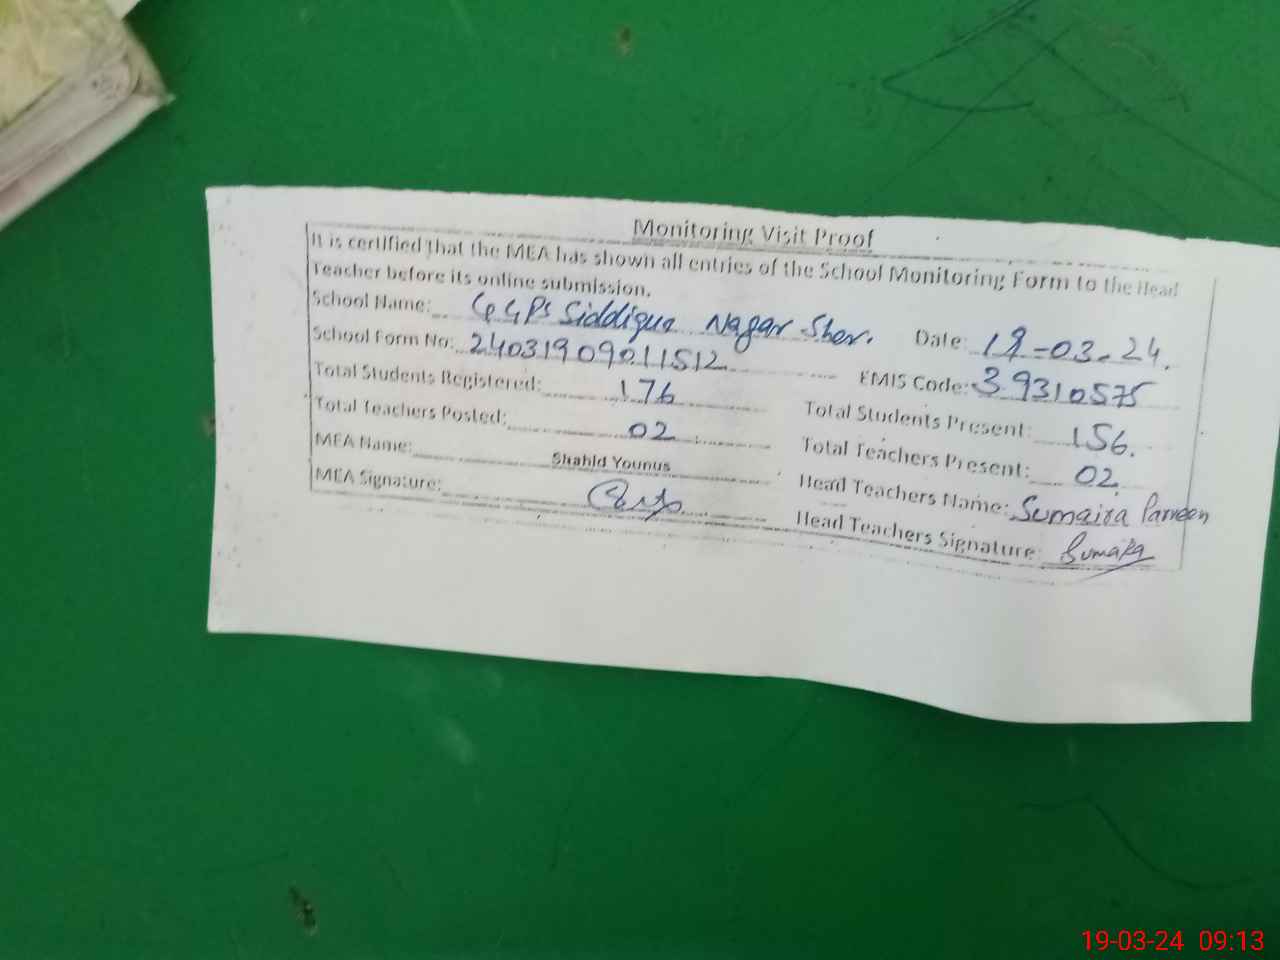 Monitoring Visit Proof
It is certified that the MEA has shown all entries of the School Monitoring Form to the Head
Teacher before its online submission.
School Name: GGPS Siddique Nagar Sher. Date: 19-03-24.
School Form No: 24031909011512 EMIS Code: 39310575
Total Students Registered: 176 Total Students Present: 156.
Total Teachers Posted: 02 Total Teachers Present: 02
MEA Name: Shahid Younus Head Teachers Name: Sumaira Parveen
MEA Signature: Head Teachers Signature: Sumaira
19-03-24 09:13